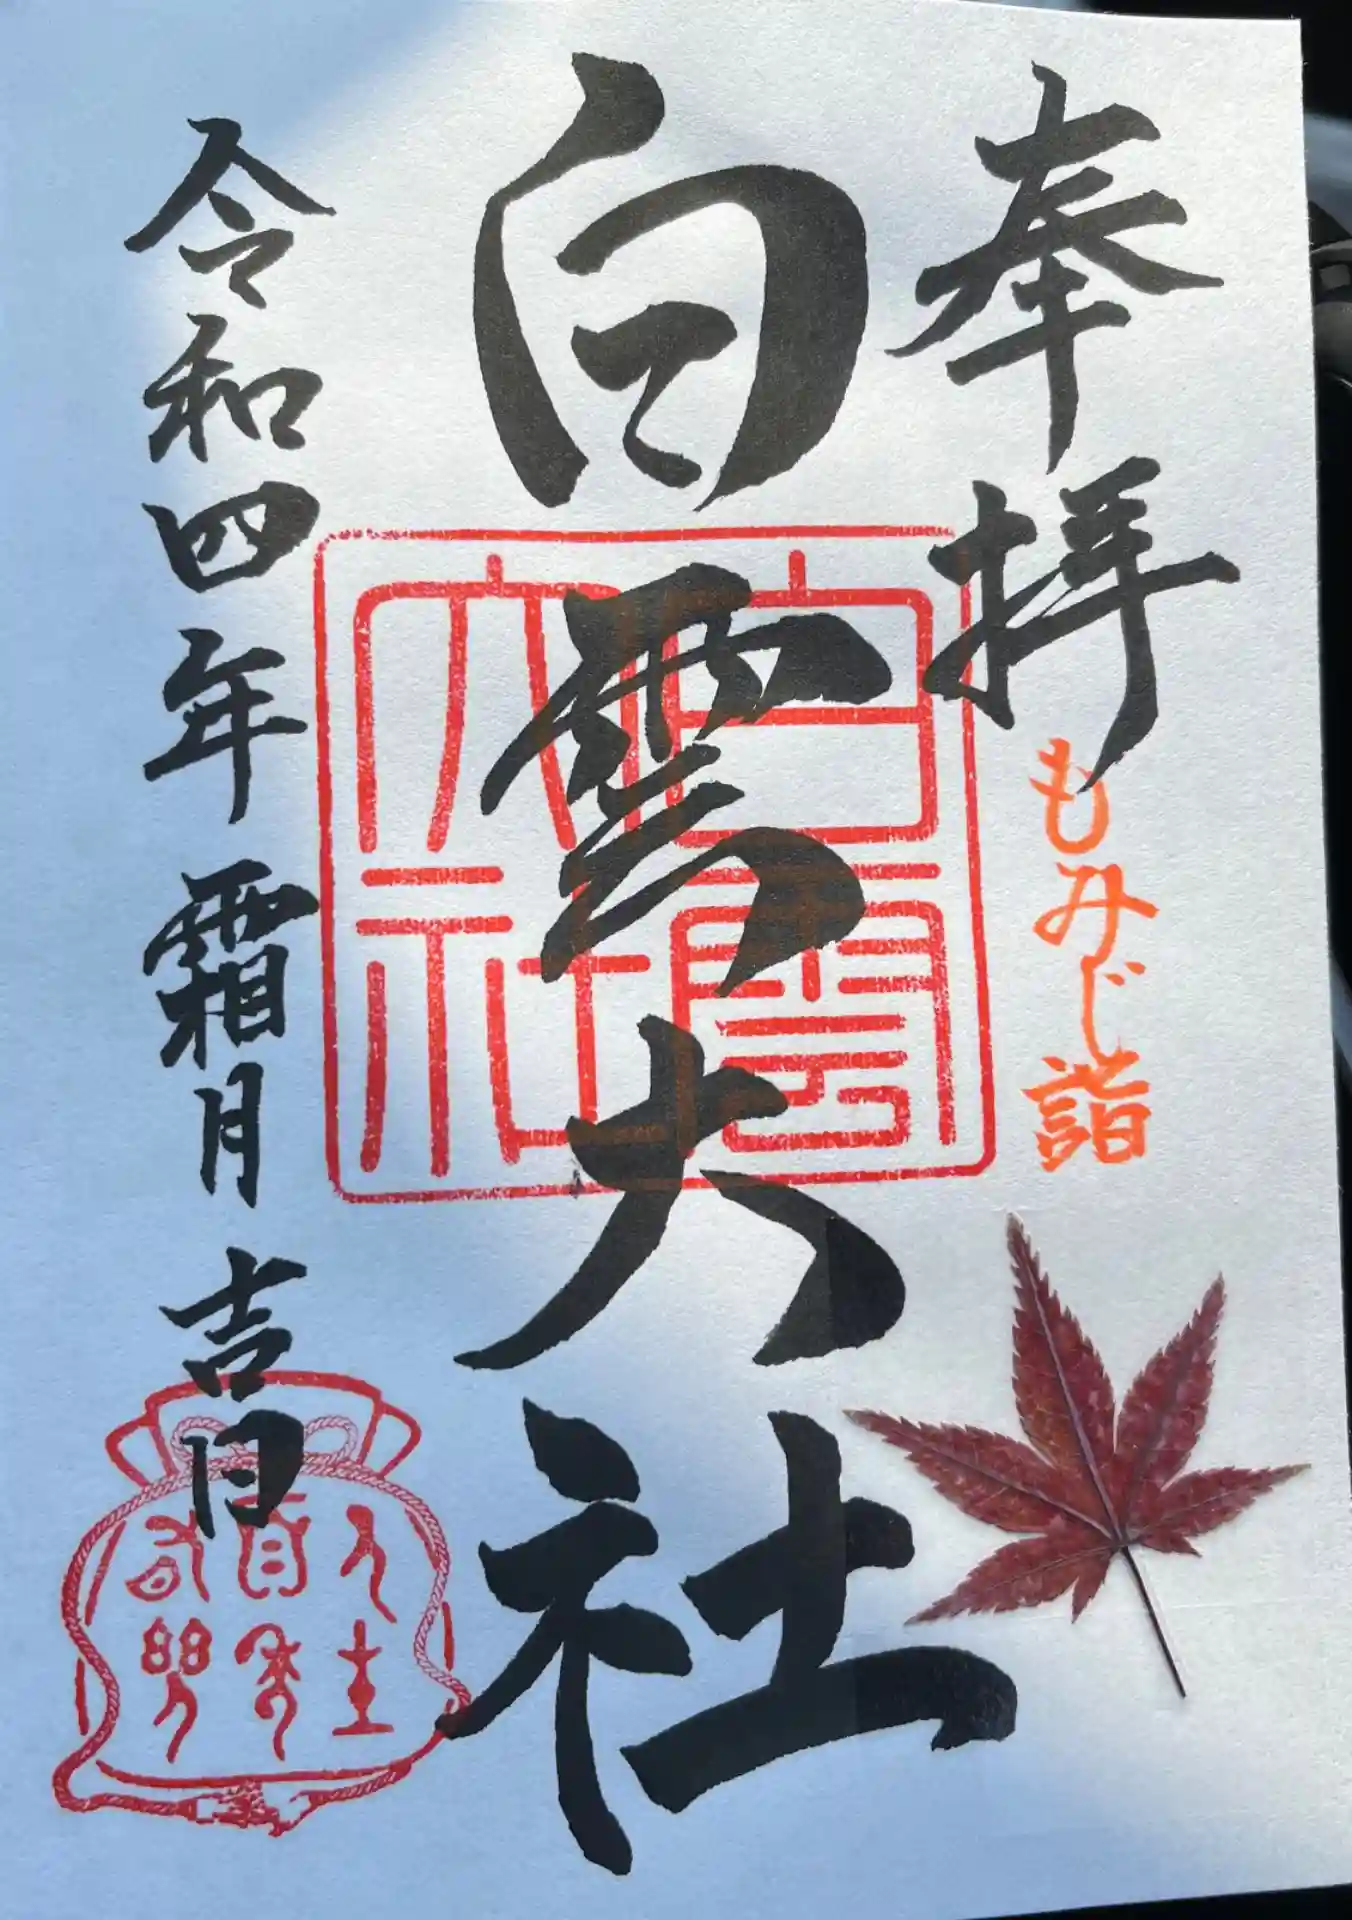 奉拝
もみじ詣
白雲大社
白雲大社
令和四年 霜月 吉日